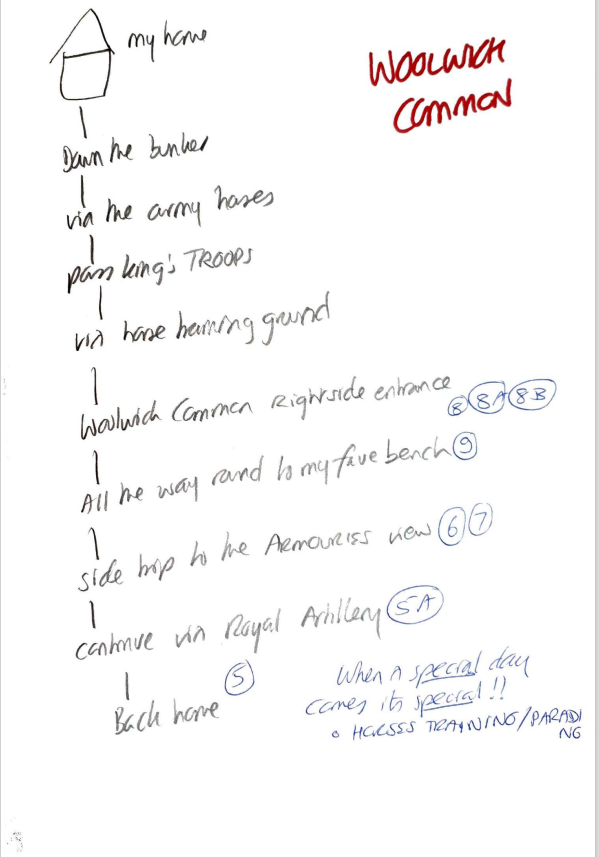 my home
WOOLWICH
COMMON
Down the bunker
via the army houses
pass king's TROOPS
via horse training ground
Woolwich Common Rightside entrance 8 8A 8B
All the way round to my fave bench 9
side trip to the ARMOURIES view 6 7
continue via Royal Artillery 5A
Back home 5
When a special day
comes its special!!
• HORSES TRAINING/PARADI
NG